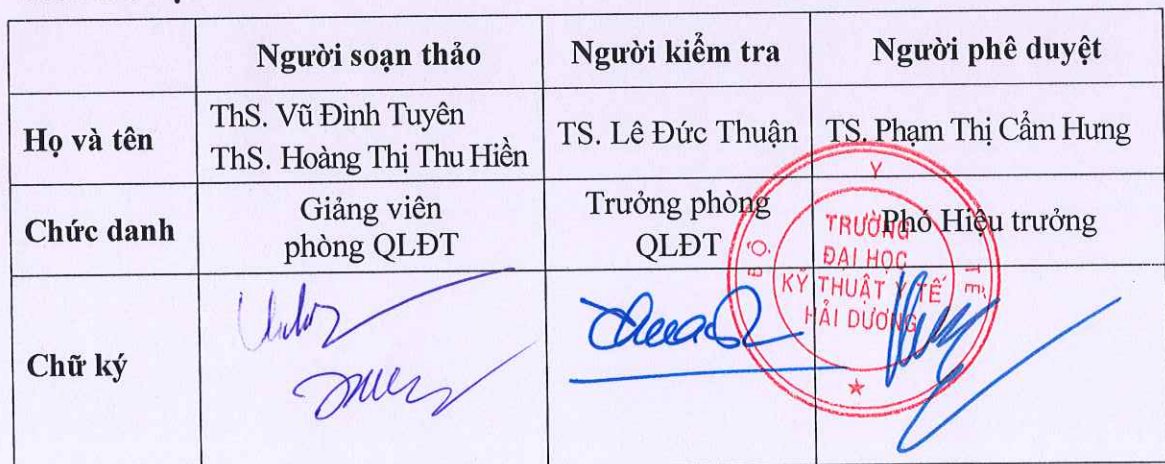 Người soạn thảo Người kiểm tra Người phê duyệt
Họ và tên
ThS. Vũ Đình Tuyên
ThS. Hoàng Thị Thu Hiền
TS. Lê Đức Thuận
TS. Phạm Thị Cẩm Hưng
Chức danh
Giảng viên
phòng QLĐT
Trưởng phòng
QLĐT
Phó Hiệu trưởng
Chữ ký
BỘ Y TẾ
TRƯỜNG
ĐẠI HỌC
KỸ THUẬT Y TẾ
HẢI DƯƠNG